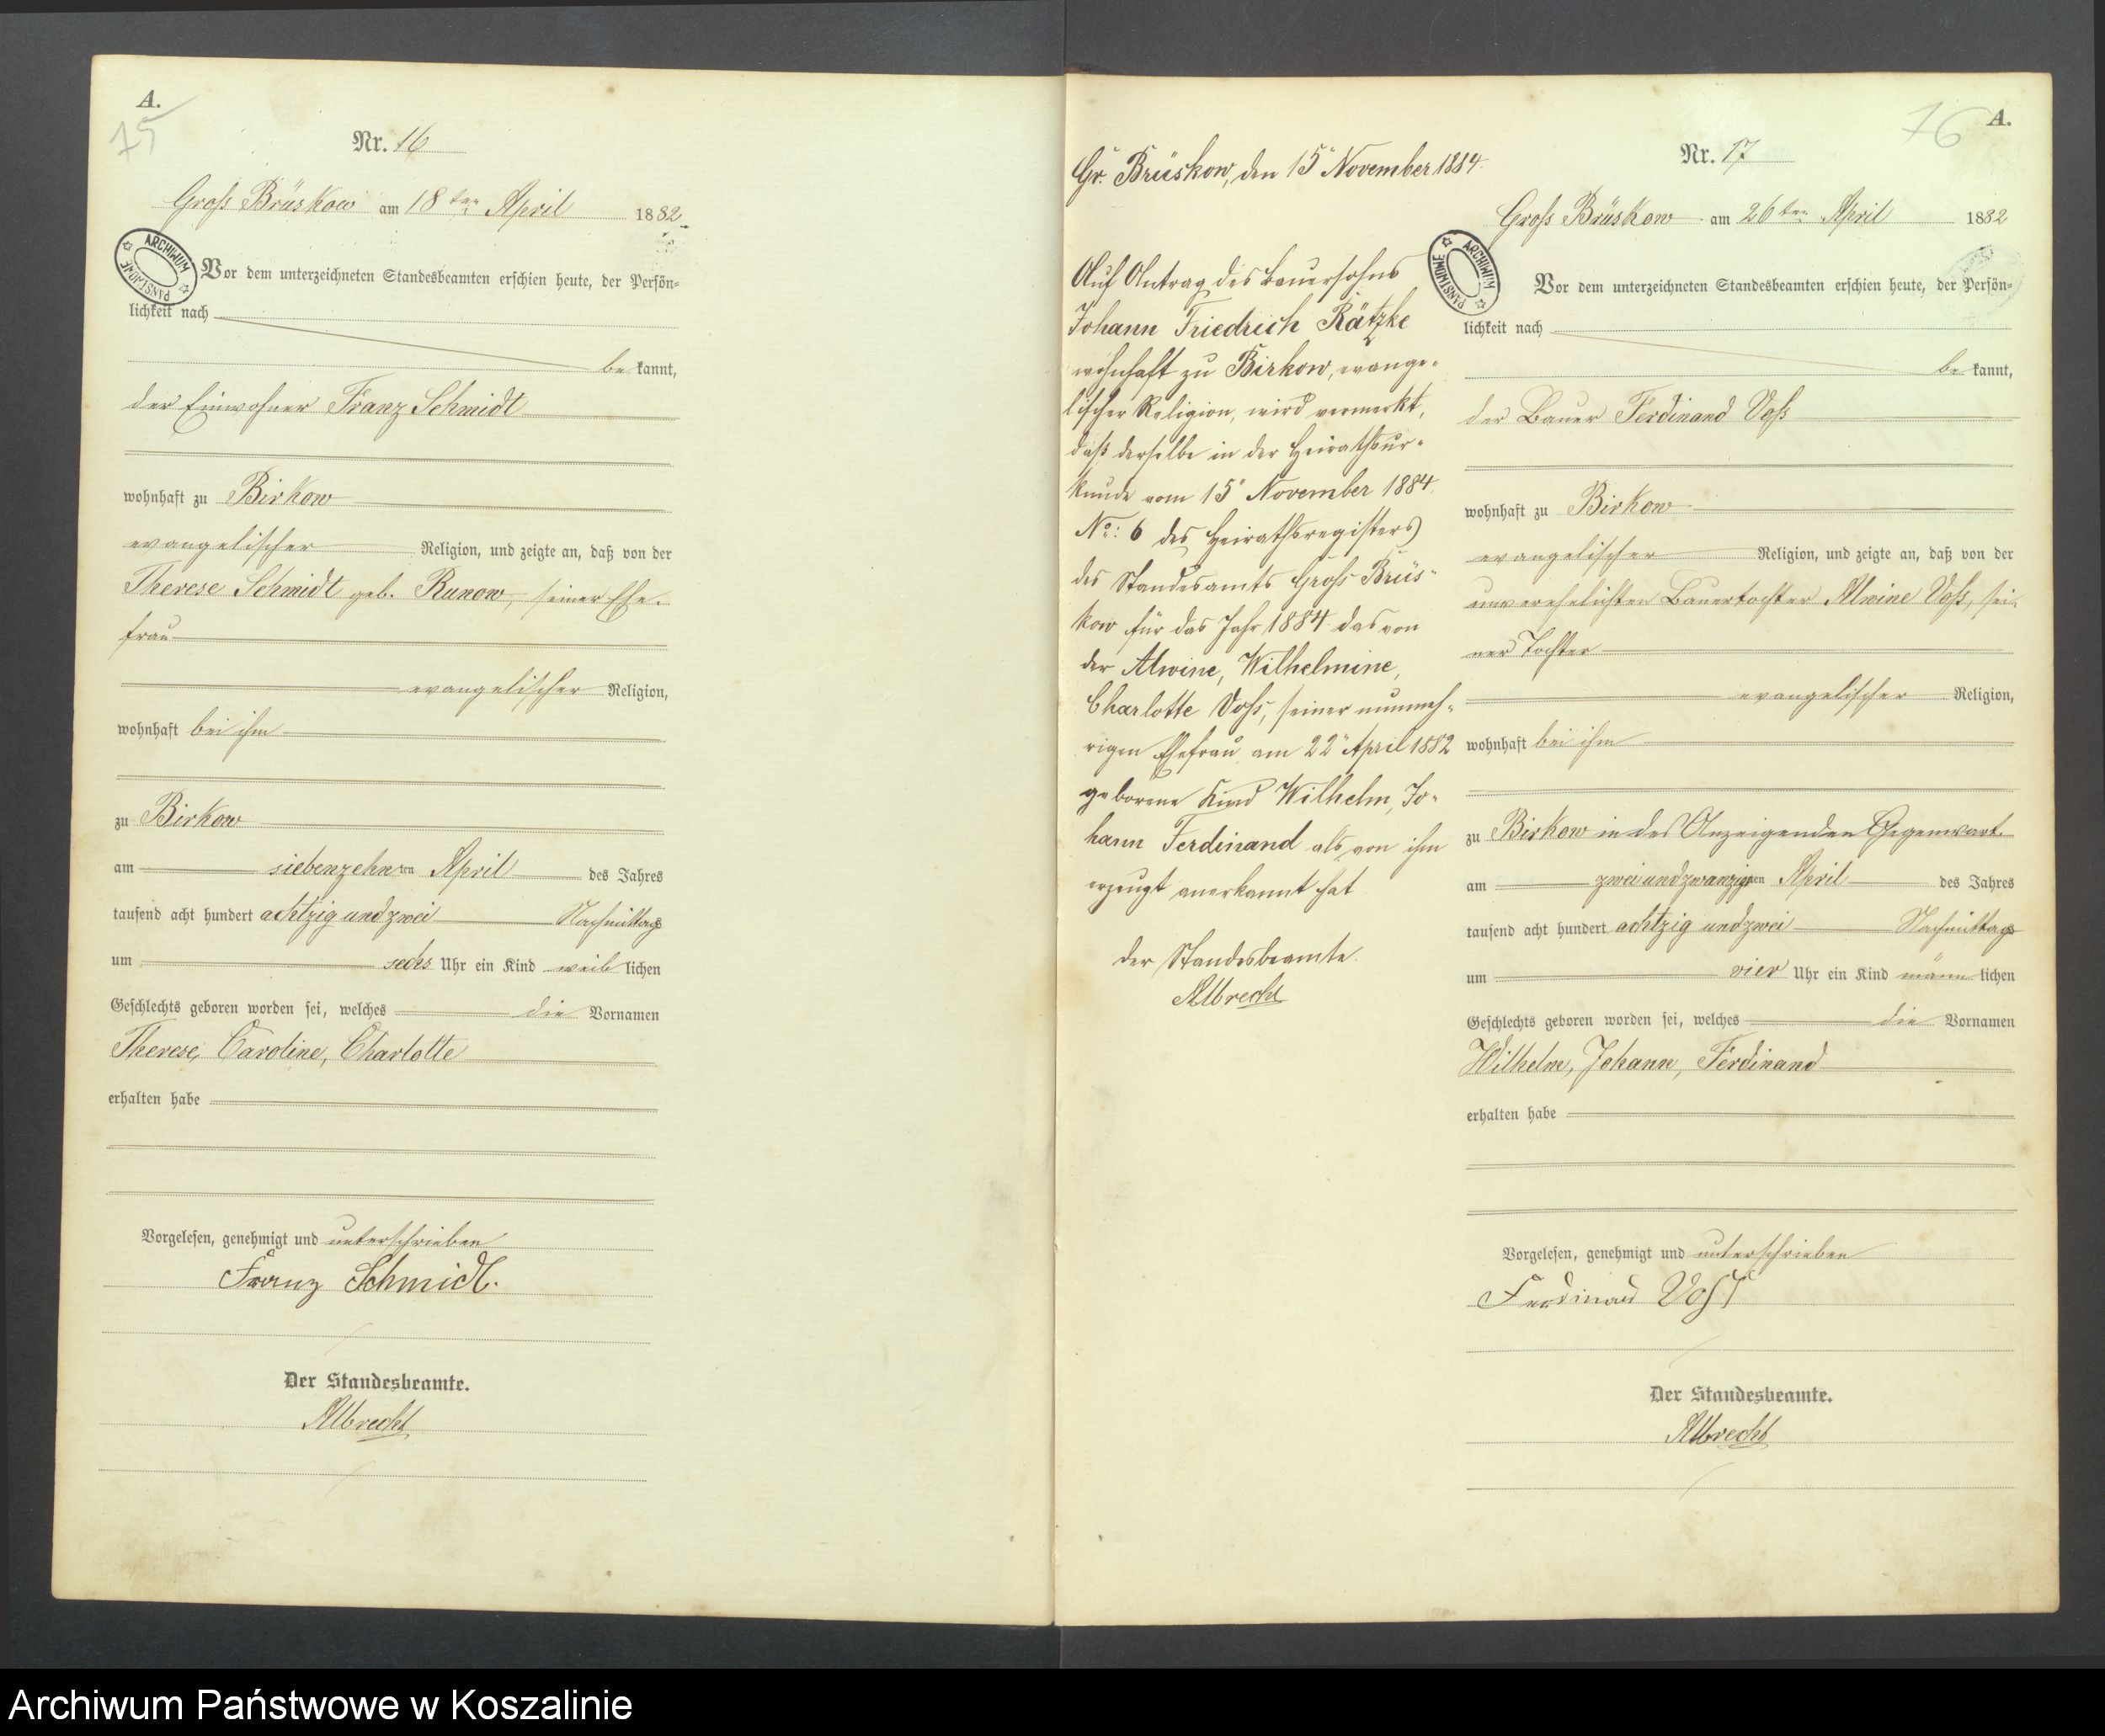 A.
75
Nr. 16
Groß Brüskow am 18ten April 1882
ARCHIWUM PAŃSTWOWE
Vor dem unterzeichneten Standesbeamten erschien heute, der Persön-
lichkeit nach
be kannt,
der Einwohner Franz Schmidt
wohnhaft zu Birkow
evangelischer Religion, und zeigte an, daß von der
Therese Schmidt geb. Runow, seiner Ehe-
frau
evangelischer Religion,
wohnhaft bei ihm
zu Birkow
am siebenzehnten April des Jahres
tausend acht hundert achtzig und zwei Nachmittags
um sechs Uhr ein Kind weib lichen
Geschlechts geboren worden sei, welches die Vornamen
Therese, Caroline, Charlotte
erhalten habe
Vorgelesen, genehmigt und unterschrieben
Franz Schmidt.
Der Standesbeamte.
Albrecht
Gr. Brüskow, den 15 November 1884.
Auf Antrag des Bauersohns
Johann Friedrich Rätzke
wohnhaft zu Birkow, evange-
lischer Religion, wird vermerkt,
daß derselbe in der Heirathsur-
kunde vom 15 November 1884.
No: 6 des Heirathsregisters
des Standesamts Groß Brüs-
kow für das Jahr 1884 das von
der Alwine, Wilhelmine,
Charlotte Voß, seiner nunmeh-
rigen Ehefrau am 22 April 1882
geborene Kind Wilhelm, Jo-
hann Ferdinand als von ihm
erzeugt anerkannt hat
der Standesbeamte.
Albrecht
76
A.
Nr. 17
Groß Brüskow am 26ten April 1882
ARCHIWUM PAŃSTWOWE
Vor dem unterzeichneten Standesbeamten erschien heute, der Persön-
lichkeit nach
be kannt,
der Bauer Ferdinand Voß
wohnhaft zu Birkow
evangelischer Religion, und zeigte an, daß von der
unverehelichten Bauertochter Alwine Voß, sei-
ner Tochter
evangelischer Religion,
wohnhaft bei ihm
zu Birkow in des Anzeigenden Gegenwart
am zwei und zwanzigsten April des Jahres
tausend acht hundert achtzig und zwei Nachmittags
um vier Uhr ein Kind männ lichen
Geschlechts geboren worden sei, welches die Vornamen
Wilhelm, Johann, Ferdinand
erhalten habe
Vorgelesen, genehmigt und unterschrieben
Ferdinand Voß
Der Standesbeamte.
Albrecht
Archiwum Państwowe w Koszalinie